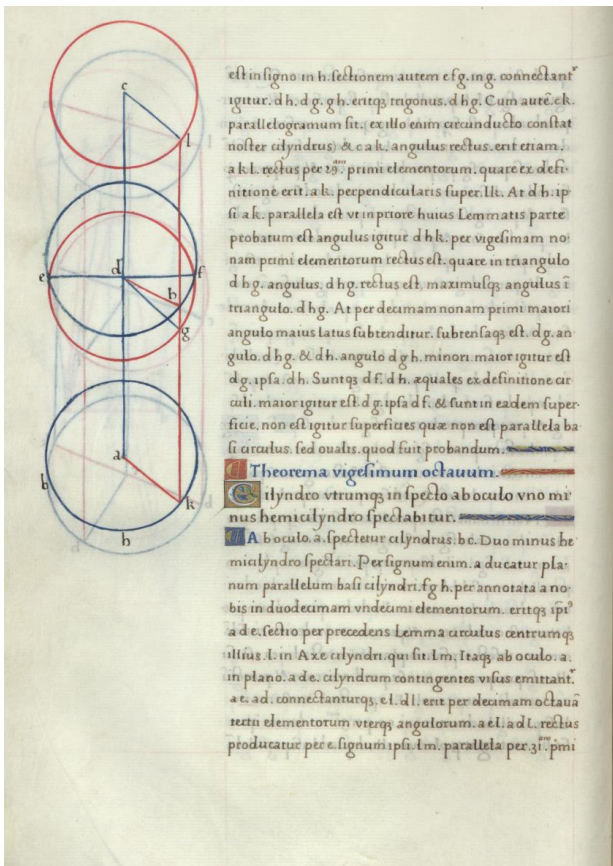 c
l
e
d
f
h
g
a
b
k
h
est in signo in h. sectionem autem e f g. in g. connectantʳ
igitur. d h. d g. g h. eritqꝫ trigonus. d h g. Cum autē. c k.
parallelogramum sit. (ex illo enim circunducto constat
noster cilyndrus) & c a k. angulus rectus. erit etiam.
a k l. rectus per 29ᵃᵐ. primi elementorum. quare ex defi-
nitione erit. a k. perpendicularis super. lk. At d h. ip
si a k. parallela est vt in priore huius Lemmatis parte
probatum est angulus igitur d h k. per vigesimam no-
nam primi elementorum rectus est. quare in triangulo
d h g. angulus. d h g. rectus est. maximusqꝫ angulus ī
triangulo. d h g. At per decimam nonam primi maiori
angulo maius latus subtenditur. subtensaqꝫ est. d g. an-
gulo. d h g. & d h. angulo d g h. minori. maior igitur est
d g. ipsa. d h. Suntqꝫ d f. d h. æquales ex definitione cir
culi. maior igitur est. d g. ipsa d f. & sunt in eadem super-
ficie. non est igitur superficies quæ non est parallela ba
si circulus. sed oualis. quod fuit probandum.
Theorema vigesimum octauum.
Cilyndro vtrumqꝫ inspecto ab oculo vno mi-
nus hemicilyndro spectabitur.
Ab oculo. a. spectetur cilyndrus. b c. Duo minus he
micilyndro spectari. Per signum enim. a ducatur pla-
num parallelum basi cilyndri. f g h. per annotata a no-
bis in duodecimam vndecimi elementorum. eritqꝫ ipiꝰ
a d e. sectio per precedens Lemma circulus centrumqꝫ
illius. l. in Axe cilyndri. qui sit. l m. Itaqꝫ ab oculo. a.
in plano. a d e. cilyndrum contingentes visus emittantʳ.
a e. a d. connectanturqꝫ. e l. d l. erit per decimam octauā
tertii elementorum vterqꝫ angulorum. a e l. a d l. rectus
producatur per e. signum ipsi. l m. parallela per. 31ᵃᵐ. pmi